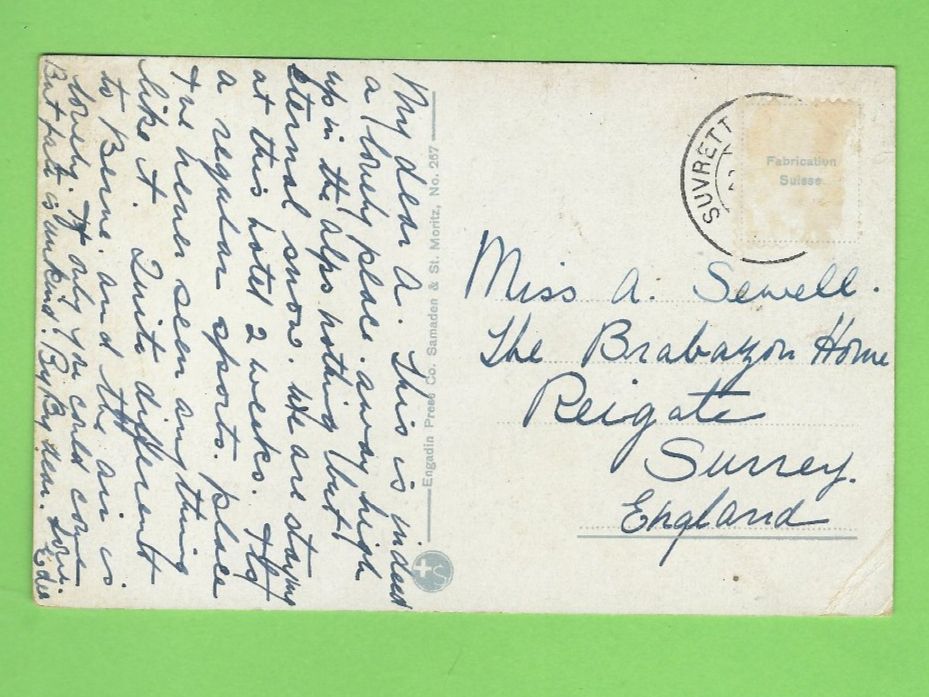 My dear A. This is indeed
a lovely place. away high
up in the Alps nothing but
eternal snow. We are staying
at this hotel 2 weeks. Its
a regular sports place
I've never seen anything
like it. Quite different
to Berne. and the air is
lovely. If only you could come
But fate is unkind. By By dear. Love.
Engadin Press Co. Samaden & St. Moritz, No. 267
SUVRETT
Fabrication
Suisse
Miss A. Sewell.
The Brabazon Home
Reigate
Surrey.
England